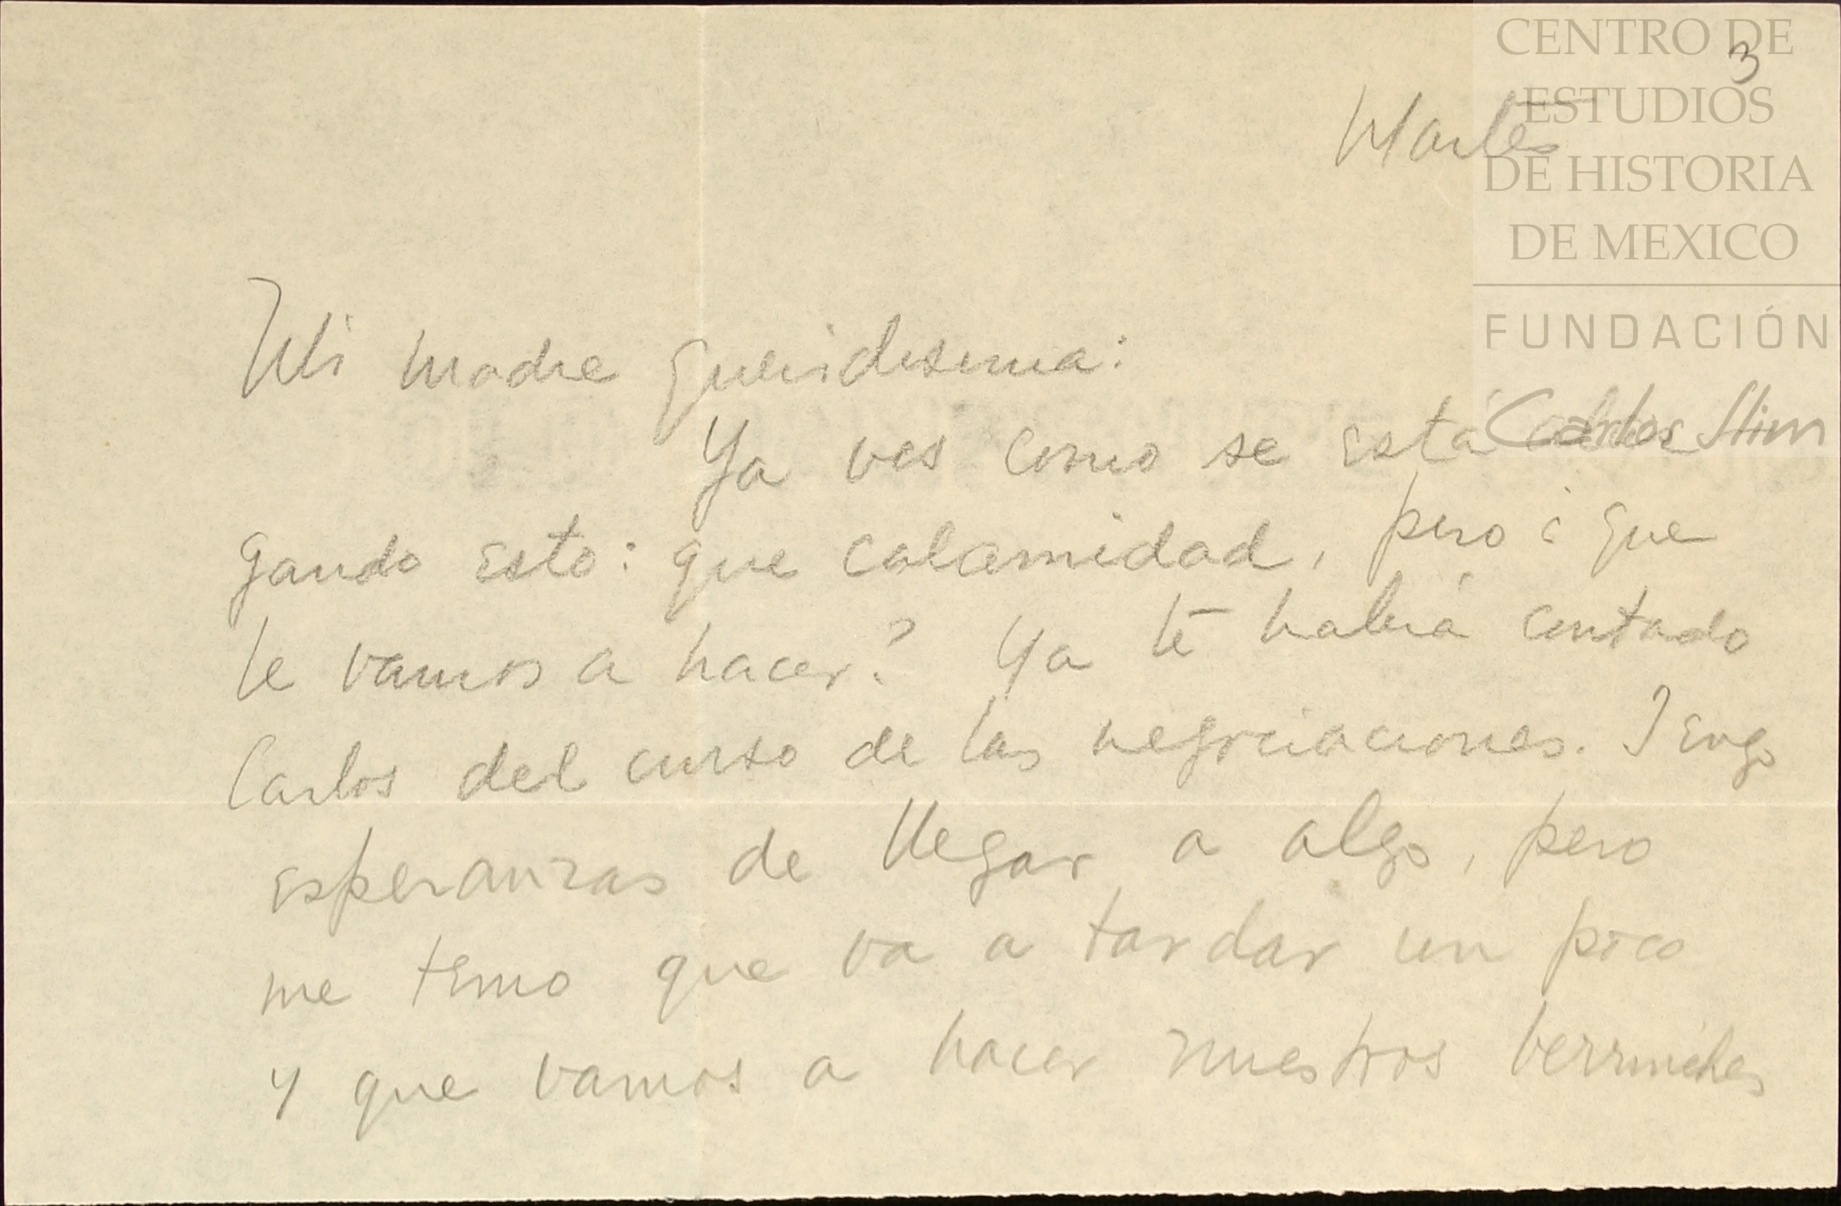 3
Martes
Mi madre queridisima:
Ya ves como se está alar
gando esto: que calamidad, pero ¿que
le vamos a hacer? Ya te habrá contado
Carlos del curso de las negociaciones. Tengo
esperanzas de llegar a algo, pero
me temo que va a tardar un poco
y que vamos a hacer nuestros berrinches
CENTRO DE
ESTUDIOS
DE HISTORIA
DE MEXICO
FUNDACIÓN
Carlos Slim